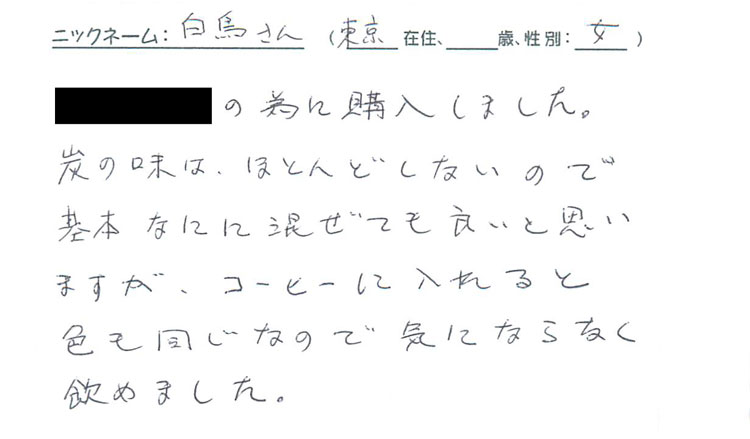 ニックネーム: 白鳥さん (東京 在住、 歳、性別: 女 )
の為に購入しました。
炭の味は、ほとんどしないので
基本なにに混ぜても良いと思い
ますが、コーヒーに入れると
色も同じなので気にならなく
飲めました。